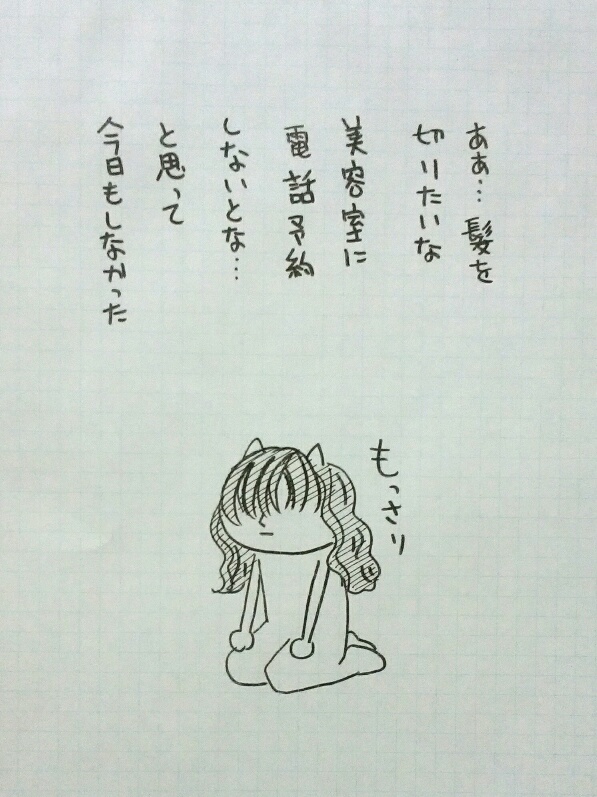 ああ…髪を
切りたいな
美容室に
電話予約
しないとな…
と思って
今日もしなかった
もっさり